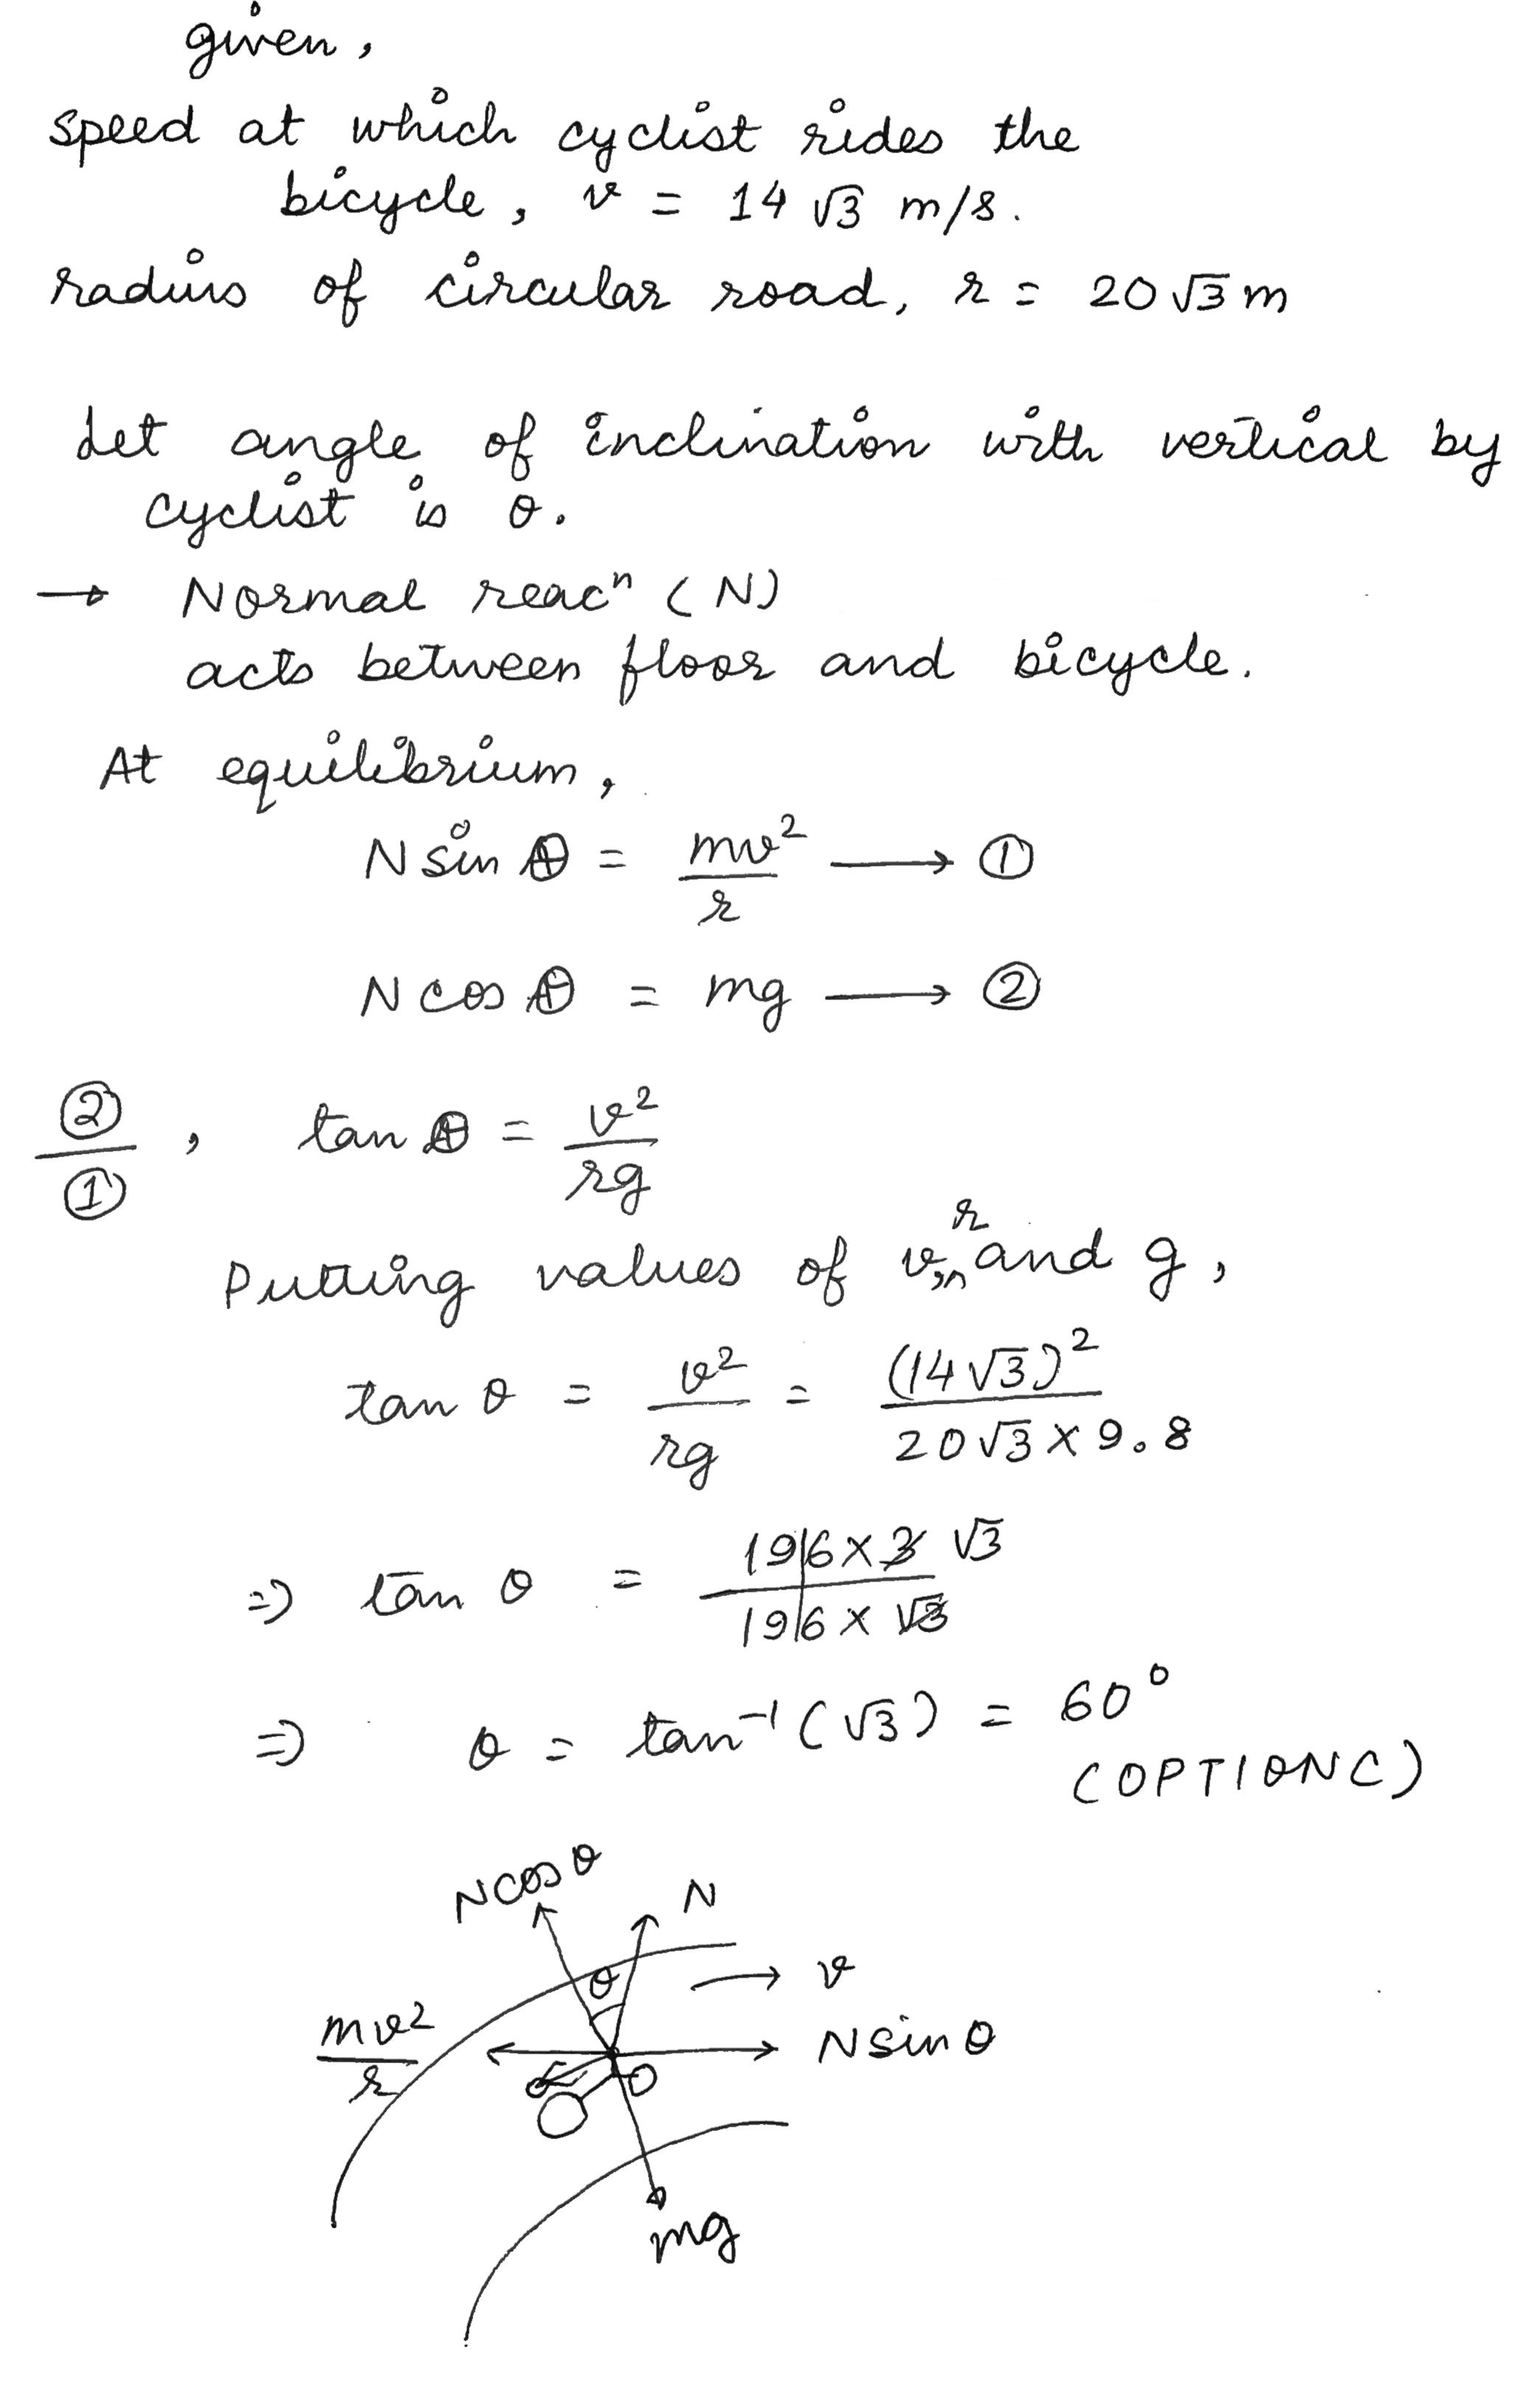 given,
speed at which cyclist rides the
bicycle, v = 14√3 m/s.
radius of circular road, r = 20√3 m
Let angle of inclination with vertical by
cyclist is θ.
→ Normal reacⁿ (N)
acts between floor and bicycle.
At equilibrium,
N sin θ = mv²/r ⟶ ①
N cos θ = mg ⟶ ②
②/①, tan θ = v²/rg
Putting values of v, r and g,
tan θ = v²/rg = (14√3)²/20√3 × 9.8
⇒ tan θ = 196 × 3 √3/196 × √3
⇒ θ = tan⁻¹(√3) = 60°
(OPTION C)
N cos θ
N
θ
v
mv²/r
N sin θ
mg